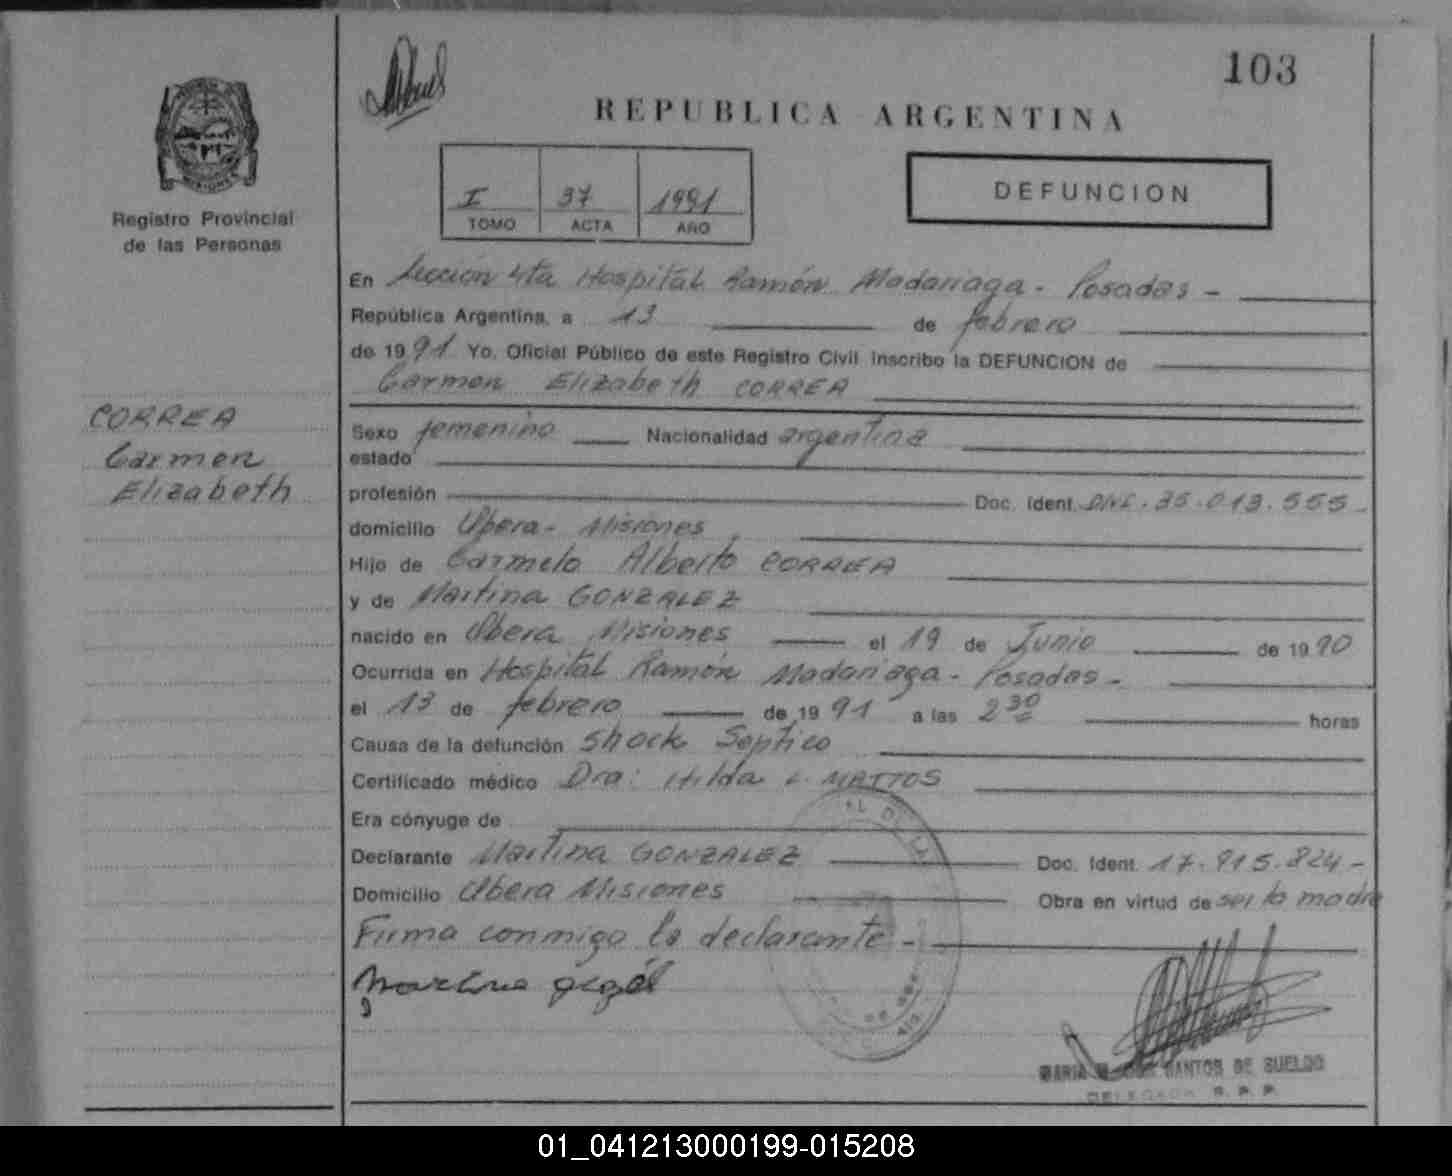 103
REPUBLICA ARGENTINA
I 37 1991
TOMO ACTA AÑO
DEFUNCION
MISIONES
Registro Provincial
de las Personas
En Sección 4ta Hospital Ramón Madariaga - Posadas -
República Argentina, a 13 de febrero
de 1991 Yo, Oficial Público de este Registro Civil inscribo la DEFUNCION de
Carmen Elizabeth CORREA
CORREA
Carmen
Elizabeth
Sexo femenino Nacionalidad argentina
estado
profesión Doc. Ident. DNI. 35.013.555 -
domicilio Obera - Misiones
Hijo de Carmelo Alberto CORREA
y de Martina GONZALEZ
nacido en Obera Misiones el 19 de Junio de 1990
Ocurrida en Hospital Ramón Madariaga - Posadas -
el 13 de febrero de 1991 a las 2 30 horas
Causa de la defunción Shock Septico
Certificado médico Dra: Hilda L. MATTOS
Era cónyuge de
Declarante Martina GONZALEZ Doc. Ident. 17.915.824 -
Domicilio Obera Misiones Obra en virtud de ser la madre
Firma conmigo la declarante -
MARIA DOS SANTOS DE SUELDO
DELEGADA R. P. P.
01_041213000199-015208